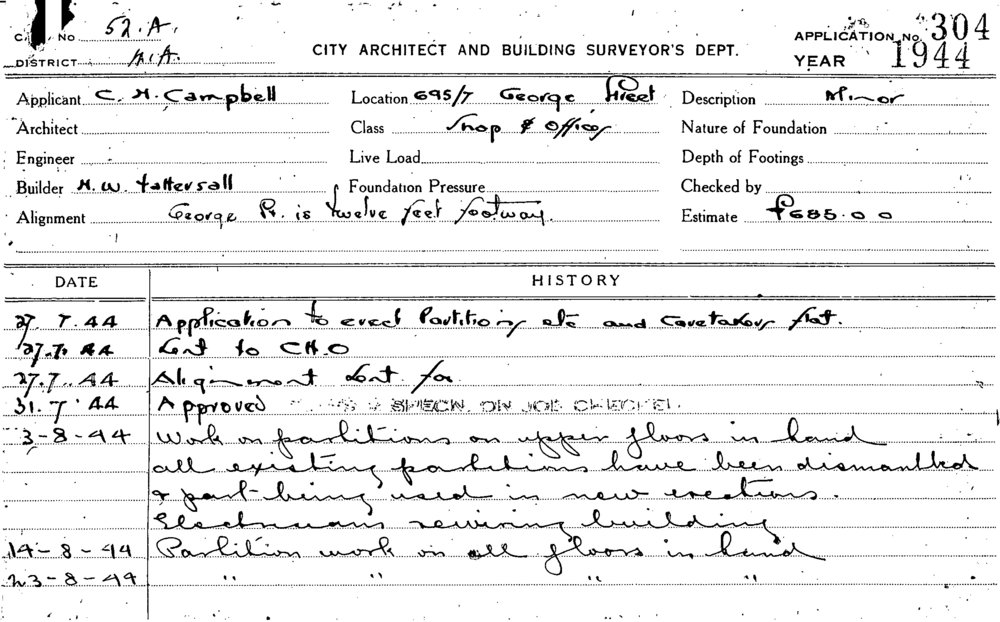 C No 52.A. APPLICATION No. 304
DISTRICT A.A. CITY ARCHITECT AND BUILDING SURVEYOR'S DEPT. YEAR 1944
Applicant C. H. Campbell Location 695/7 George Street Description Minor
Architect Class Shop & Offices Nature of Foundation
Engineer Live Load Depth of Footings
Builder H. W. Tattersall Foundation Pressure Checked by
Alignment George St. is twelve feet footway. Estimate £685.0 0
DATE HISTORY
27. 7. 44 Application to erect Partitions etc and Caretakers flat.
27.7. 44 Sent to C.H.O
27.7. 44 Alignment Sent for
31. 7 44 Approved SPECN. ON JOB CHECKED.
3-8-44 Work on partitions on upper floors in hand
all existing partitions have been dismantled
& part being used in new erections.
Electricians rewiring building
14-8-44 Partition work on all floors in hand
23-8-44 " " " "